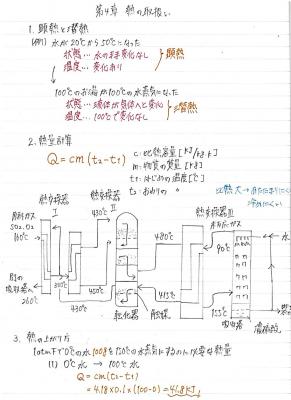 第4章 熱の取扱い
1. 顕熱と潜熱
(例) 水が20℃から50℃になった
状態… 水のまま変化なし
温度… 変化あり
顕熱
100℃のお湯が100℃の水蒸気になった
状態… 液体が気体へと変化
温度… 100℃で変化なし
潜熱
2. 熱量計算
Q = cm(t₂-t₁)
c: 比熱容量 [kJ/kg・K]
m: 物体の質量 [kg]
t₁: はじめの温度 [℃]
t₂: おわりの 〃
比熱 大→
熱交換器
I
熱交換器
II
熱交換器 III
原料ガス
SO₂, O₂
430℃
480℃
90℃
水
300℃
450℃
430℃
415℃
155℃
260℃
転化器
触媒
吸収器
3. 熱の上がり方
1atm下で0℃の水100gを150℃の水蒸気にするのに必要な熱量
(1) 0℃水 → 100℃
Q = cm(t₂-t₁)
= 4.18×0.1×(100-0) = 41.8kJ